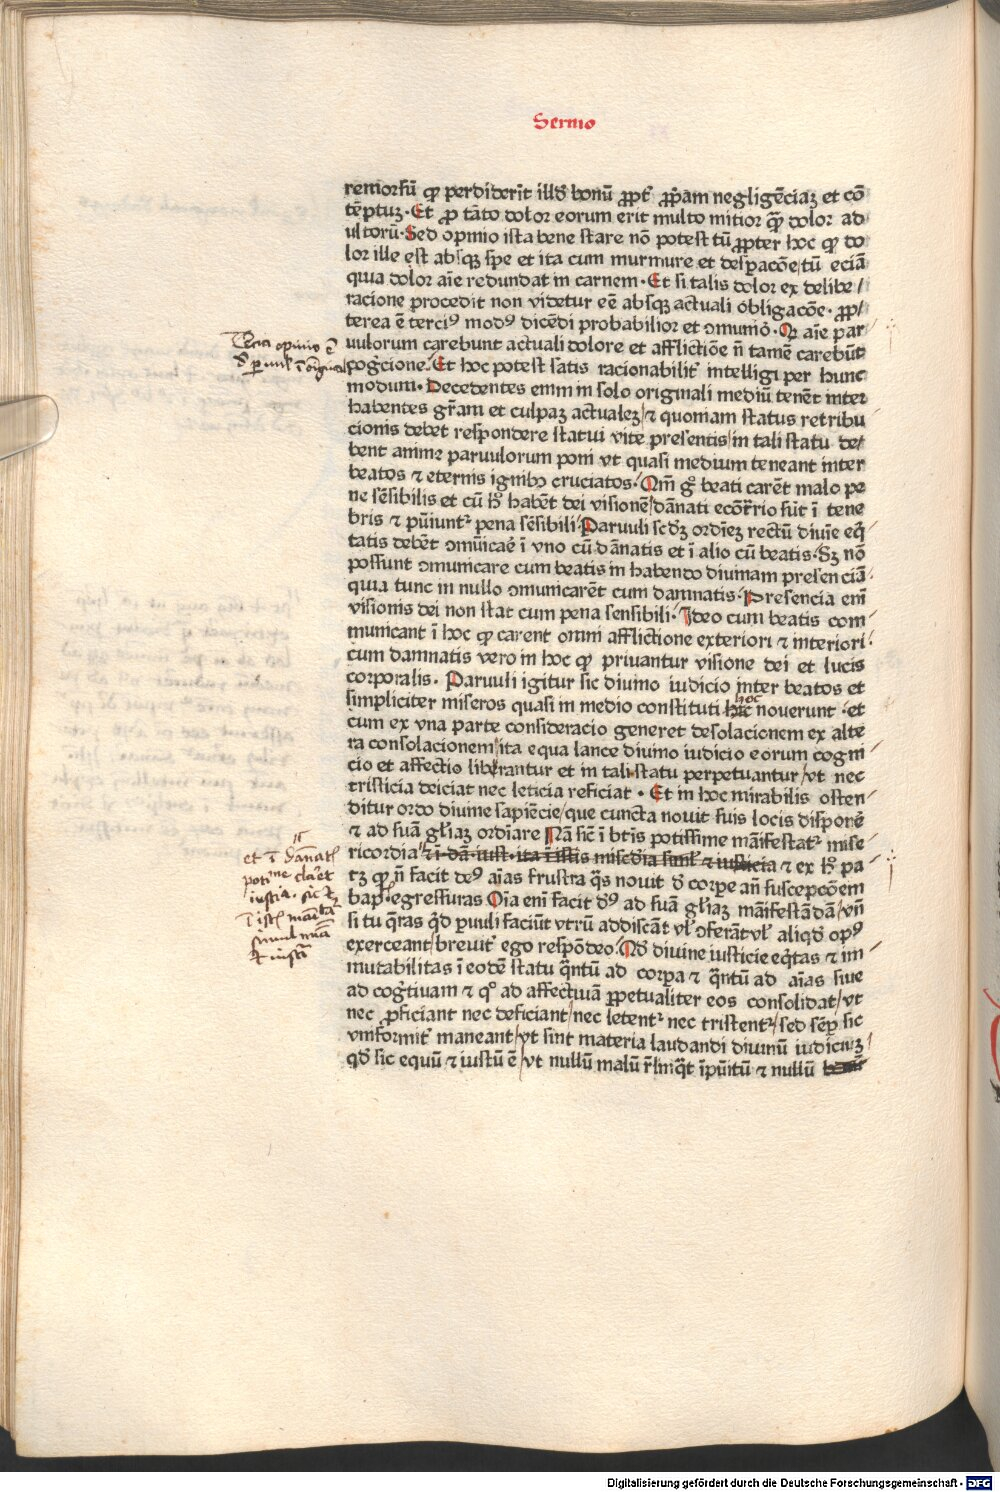 Sermo
remorsū ꝙ perdiderīt illď bonū ꝓpť ꝓp̄am negligēciaꝫ et cō
tēptuꝫ · Et ꝓ tāto dolor eorum erit multo mitior q̄ꝫ dolor ad
ultorū · Sed opinio ista bene stare nō potest tū ꝓpter hoc ꝙ do
lor ille est absqꝫ spe et ita cum murmure et desꝑacōe / tū eciā
quia dolor aīe redundat in carnem · Et si talis dolor ex delibe /
racione procedit non videtur eē absqꝫ actuali obligacōe · ꝓp /
terea ē terciꝰ modꝰ dicēdi probabilior et ꝯmunio · Q aīe par
uulorum carebunt actuali dolore et afflictiōe n̄ tamē carebūt
Tercia opinio ē
cogc̄ione · Et hoc potest satis racionabiliť intelligi per hunc
modum · Decedentes enim in solo originali mediū tenēt inter
habentes gr̄am et culpaꝫ actualeꝫ / ⁊ quoniam status retribu
cionis debet respondere statui vite presentis / in tali statu de /
bent anime paruulorum poni vt quasi medium teneant inter
beatos ⁊ eternis ignibꝰ cruciatos · Qm̄ gͦ beati carēt malo pe
ne sēsibilis et cū hͦ habēt dei visionē / dānati ecōr̄rio sūt ī tene
bris ⁊ pūiuntᷣ pena sēsibili · Paruuli scďꝫ ordīeꝫ rectū diuīe eq̄
tatis debēt ꝯmūicaē ī vno cū dānatis et ī alio cū beatis · Sꝫ nō
possunt ꝯmunicare cum beatis in habendo diuinam presenciā ·
quia tunc in nullo ꝯmunicarēt cum damnatis · Presencia enī
visionis dei non stat cum pena sensibili · Ideo cum beatis com
municant ī hoc ꝙ carent omni afflictione exteriori ⁊ interiori ·
cum damnatis vero in hoc ꝙ priuantur visione dei et lucis
corporalis · Paruuli igitur sic diuino iudicio inter beatos et
simpliciter miseros quasi in medio constituti hoc nouerunt · et
cum ex vna parte consideracio generet desolacionem ex alte
ra consolacionem / ita equa lance diuino iudicio eorum cogni
cio et affectio librantur et in tali statu perpetuantur / vt nec
tristicia deiciat nec leticia reficiat · Et in hoc mirabilis osten
ditur ordo diuine sapiēcie / que cuncta nouit suis locis disponē
⁊ ad suā gl̄iaꝫ ordīare Nā sic̄ ī bt̄is potissime māifestatᷣ mise
ricordia / ⁊ ī dā · iust · ita ī istis misc̄dia simĺ ⁊ iusticia ⁊ ex hͦ pa
tꝫ ꝙ n̄ facit deꝰ aīas frustra q̄s nouit ď corpe an̄ suscepcōem
et ī dānatꝭ
iusticia · sic ⁊
bapͭ egressuras Oīa enī facit dꝰ ad suā gl̄iaꝫ māifestādā / vn̄
si tu q̄ras qͥd ꝑuuli faciūt vtrū addiscāt vĺ ꝯferāt vĺ aliqď opꝰ
exerceant / breuiť ego respōdeo · Qď diuine iusticie eqͥtas ⁊ im
mutabilitas ī eodē statu q̄ntū ad corpa ⁊ q̄ntū ad aīas siue
ad cogtiuam ⁊ qͦ ad affectiuā ꝑpetualiter eos consolidat / vt
nec ꝓficiant nec deficiant / nec letentᷣ nec tristentᷣ / sed sēꝑ sic
vniformiť maneant / vt sint materia laudandi diuinū iudiciuꝫ
qď sic equū ⁊ iustū ē / vt nullū malū r̄linqͥt īpūitū ⁊ nullū
Digitalisierung gefördert durch die Deutsche Forschungsgemeinschaft - DFG